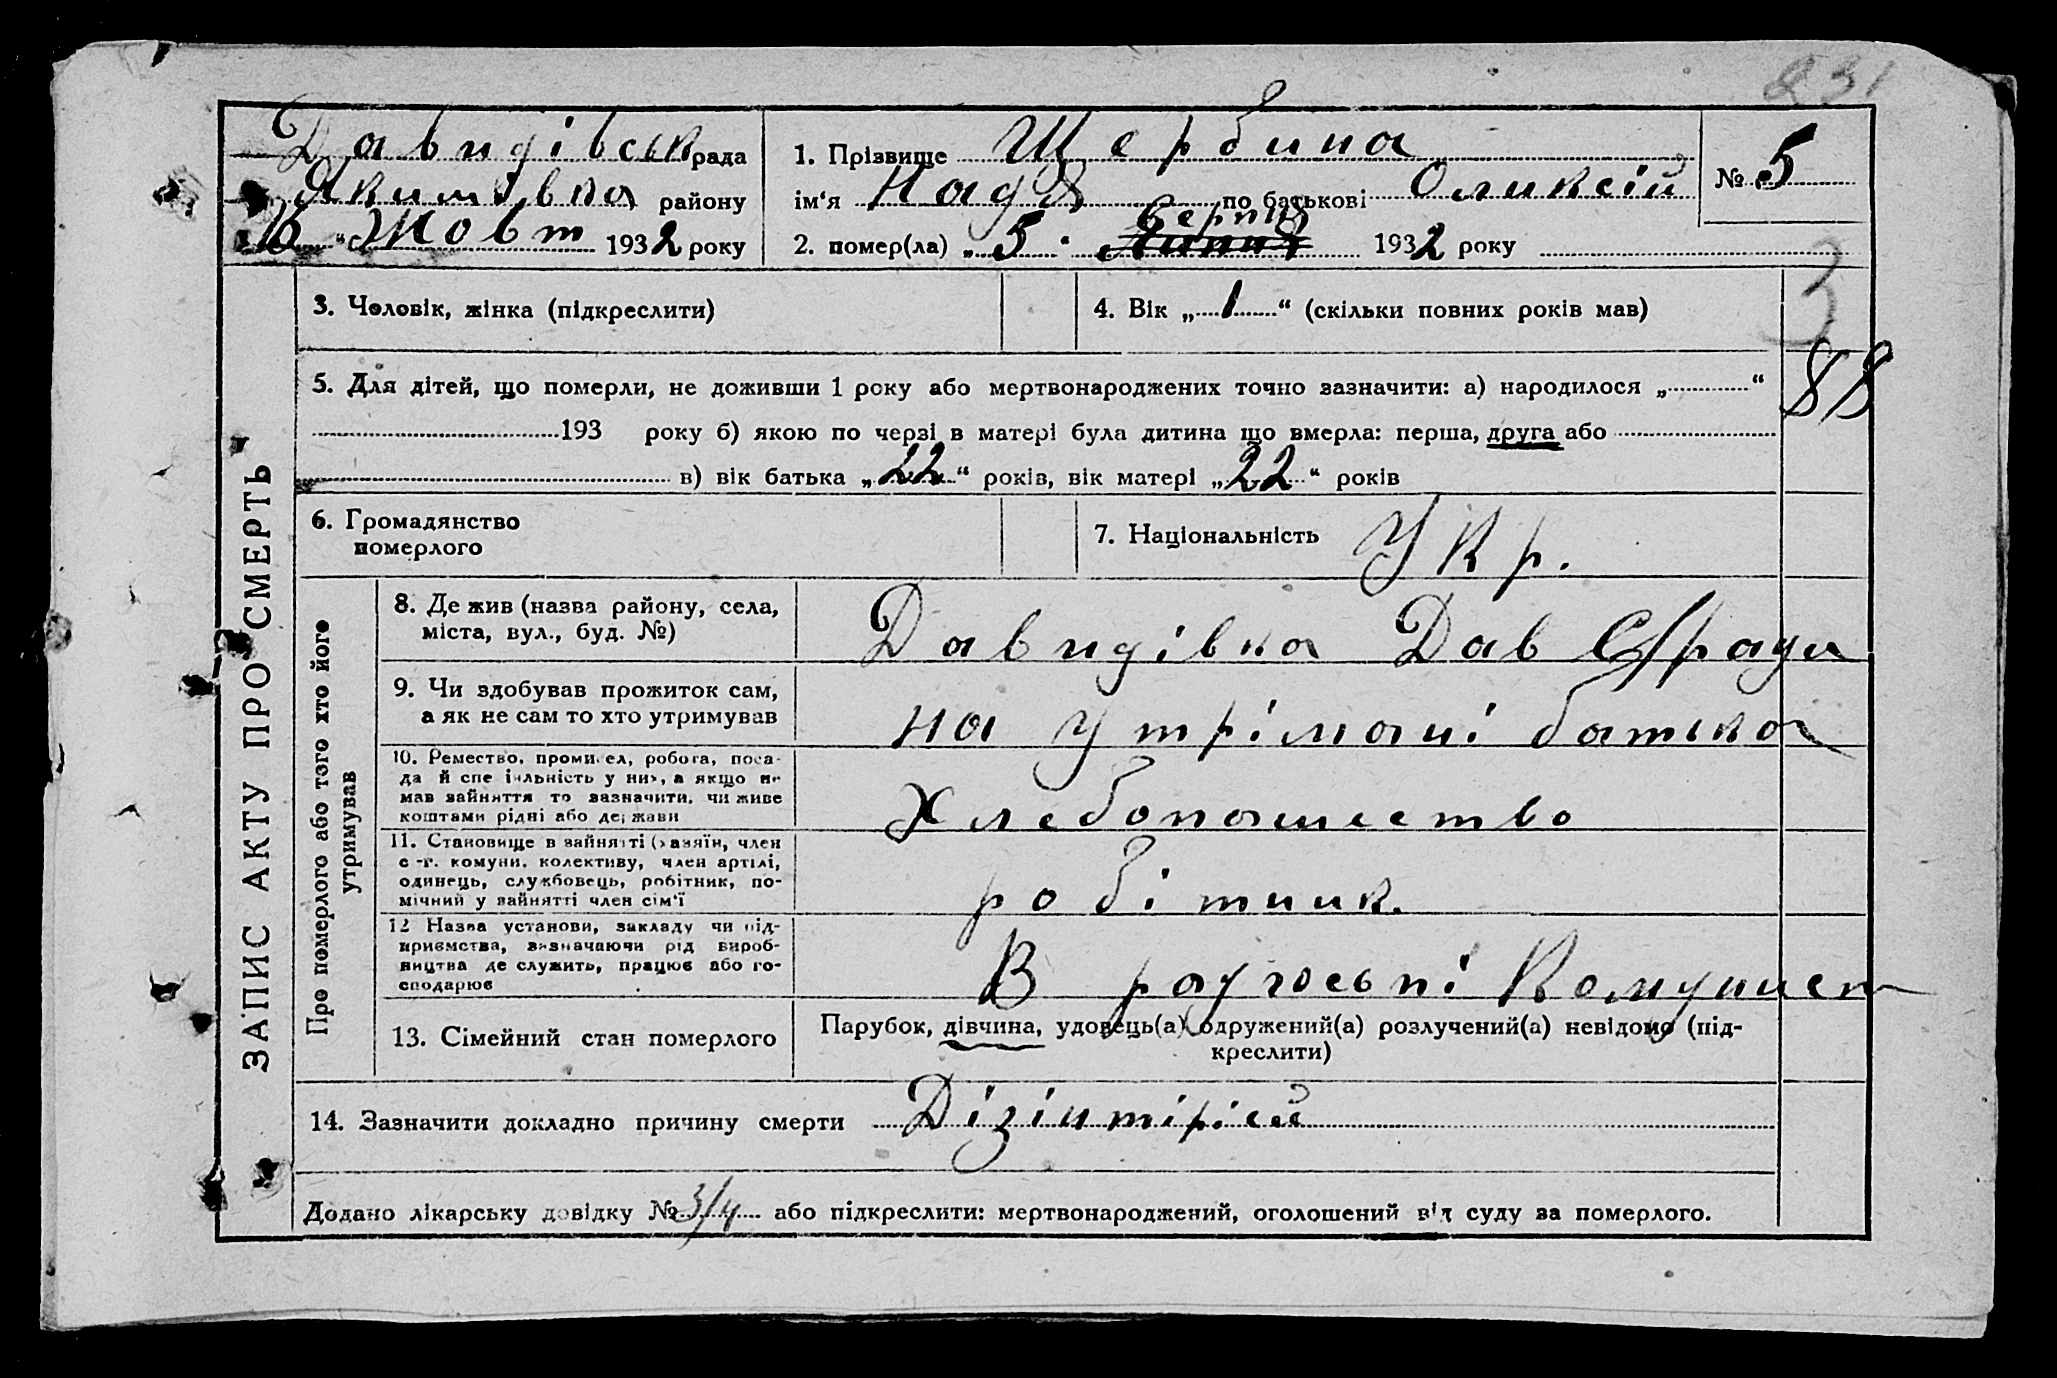 231
Давидівськ рада
Якимівка району
16 " Жовт 1932 року
1. Прізвище Щербина
ім'я Надя по батькові Оликсій
№ 5
Серпня
2. помер(ла) „5" Липня 1932 року
3
3. Чоловік, жінка (підкреслити)
4. Вік „1" (скільки повних років мав)
88
5. Для дітей, що померли, не доживши 1 року або мертвонароджених точно зазначити: а) народилося „ "
193 року б) якою по черзі в матері була дитина що вмерла: перша, друга або
в) вік батька „22" років, вік матері „22" років
6. Громадянство
померлого
7. Національність Укр.
ЗАПИС АКТУ ПРО СМЕРТЬ
Про померлого або того хто його
утримував
8. Де жив (назва району, села,
міста, вул., буд. №)
Давидівка Дав С/ради
9. Чи здобував прожиток сам,
а як не сам то хто утримував
на утрімані батька
10. Ремество, промисел, робота, поса-
да й спеціяльність у них, а якщо не
мав зайняття то зазначити, чи живе
коштами рідні або держави
Хлебопашество
11. Становище в зайнятті (хазяїн, член
с.-г. комуни, колективу, член артілі,
одинець, службовець, робітник, по-
мічний у зайнятті член сім'ї
робітник.
12 Назва установи, закладу чи під-
приємства, визначаючи рід вироб-
ництва де служить, працює або го-
сподарює
В радгоспі Комунист
13. Сімейний стан померлого
Парубок, дівчина, удовець(а) одружений(а) розлучений(а) невідомо (під-
креслити)
14. Зазначити докладно причину смерти Дізінтірієй
Додано лікарську довідку № 3/4 або підкреслити: мертвонароджений, оголошений від суду за померлого.